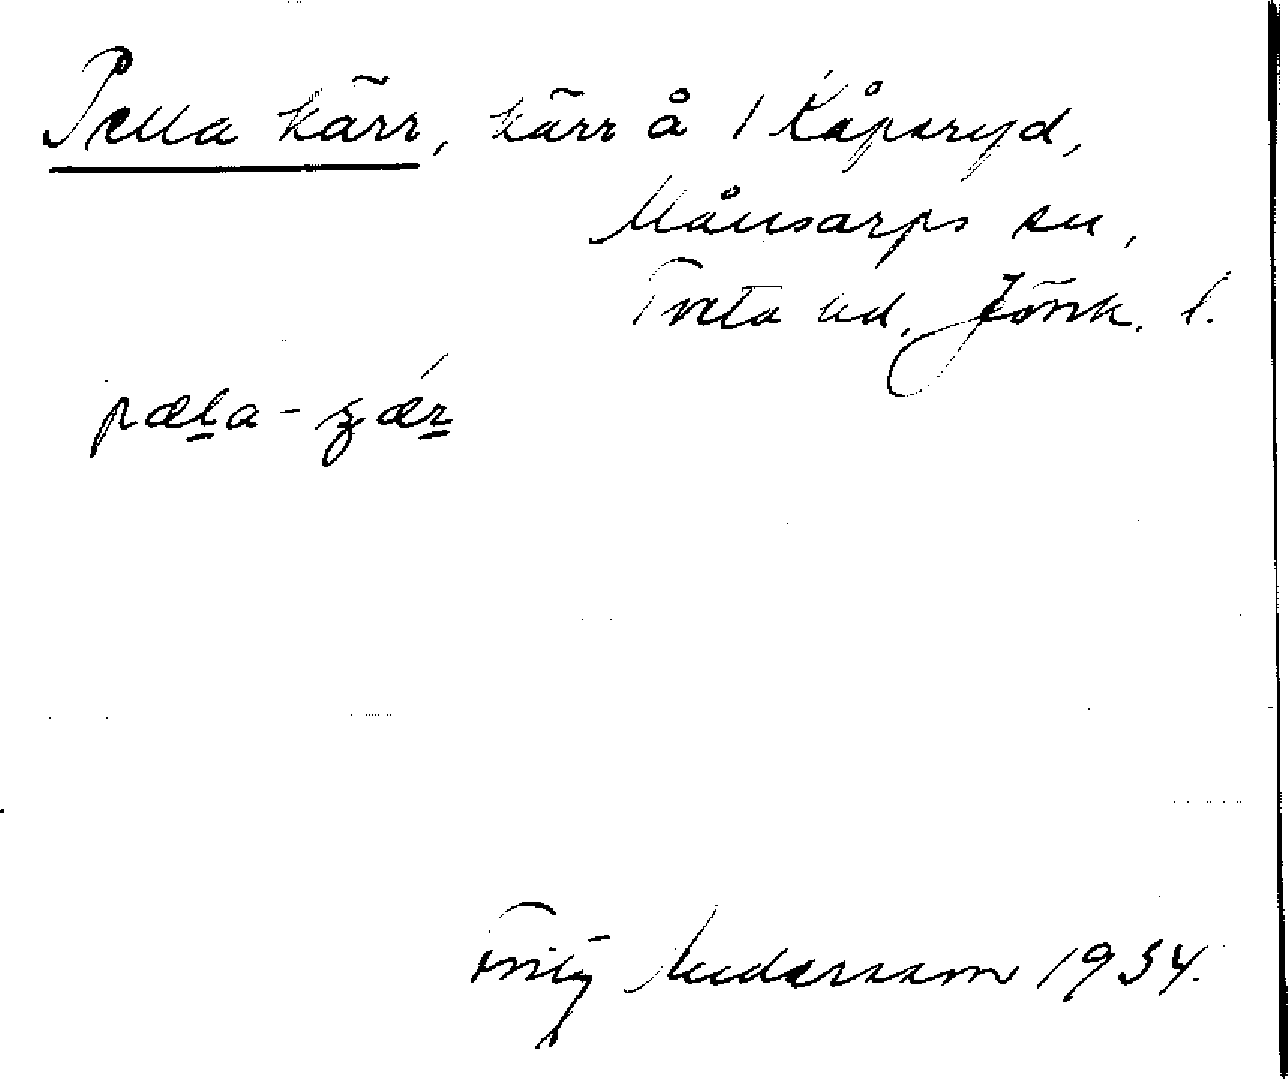 Pella kärr, kärr å 1 Kåperyd,
Månsarps sn,
Tveta hd, Jönk. l.
pæla-ʒǽr
Fritz Andersson 1934.